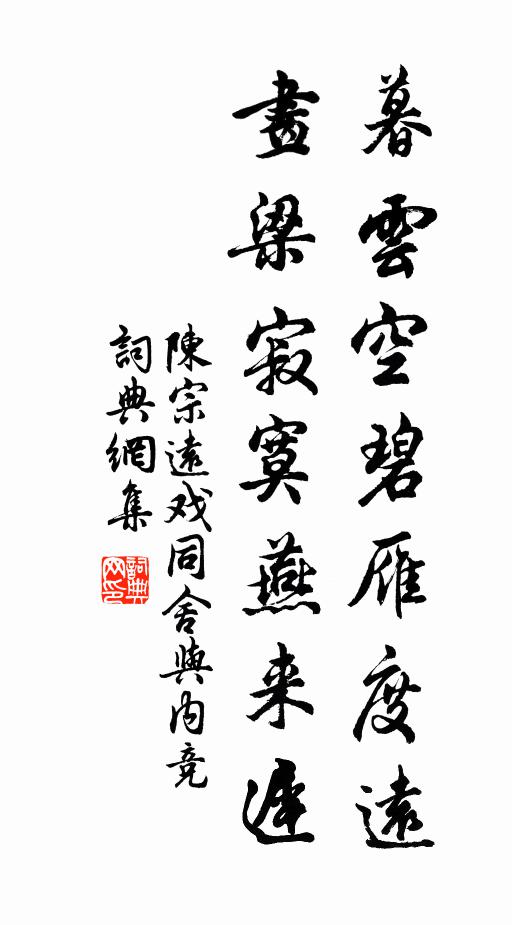 暮雲空碧雁度遠
畫梁寂寞燕来遲
陳宗遠戏同舍與内竞
詞典網集
詞典网印